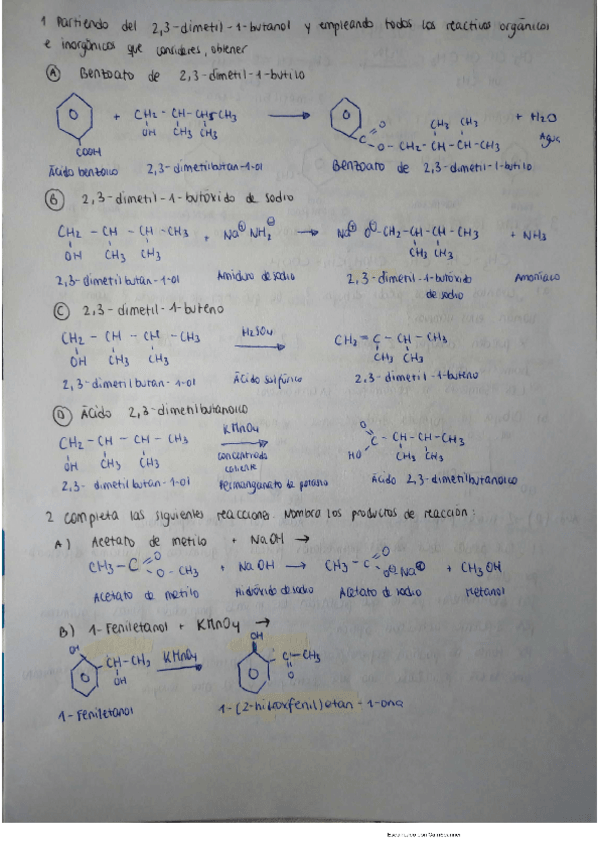 1 Partiendo del 2,3-dimetil-1-butanol y empleando todos los reactivos orgánicos
e inorgánicos que consideres, obtener
A Benzoato de 2,3-dimetil-1-butilo
+ CH2-CH-CH-CH3 → C O O-CH2-CH-CH-CH3 + H2O
OH CH3 CH3 CH3 CH3 Agua
COOH
Ácido benzoico 2,3-dimetilbutan-1-ol Benzoato de 2,3-dimetil-1-butilo
B 2,3-dimetil-1-butóxido de sodio
CH2 - CH - CH - CH3 + Na⊕ NH2⊖ → Na⊕ O⊖-CH2-CH-CH-CH3 + NH3
OH CH3 CH3 CH3 CH3
2,3-dimetilbutan-1-ol Amiduro de sodio 2,3-dimetil-1-butóxido Amoníaco
de sodio
C 2,3-dimetil-1-buteno
CH2 - CH - CH - CH3 H2SO4 → CH2=C-CH-CH3
OH CH3 CH3 CH3 CH3
2,3-dimetilbutan-1-ol Ácido sulfúrico 2,3-dimetil-1-buteno
D Ácido 2,3-dimetilbutanoico
CH2 - CH - CH - CH3 KMnO4 → O C-CH-CH-CH3
OH CH3 CH3 concentrado HO CH3 CH3
caliente
2,3-dimetilbutan-1-ol Permanganato de potasio Ácido 2,3-dimetilbutanoico
2 Completa las siguientes reacciones. Nombra los productos de reacción:
A) Acetato de metilo + NaOH →
CH3-C O O-CH3 + NaOH → CH3-C O O⊖Na⊕ + CH3OH
Acetato de metilo Hidróxido de sodio Acetato de sodio Metanol
B) 1-Feniletanol + KMnO4 →
OH CH-CH3 KMnO4 → OH C-CH3
OH O
1-Feniletanol 1-(2-hidroxfenil)etan-1-ona
Escaneado con CamScanner